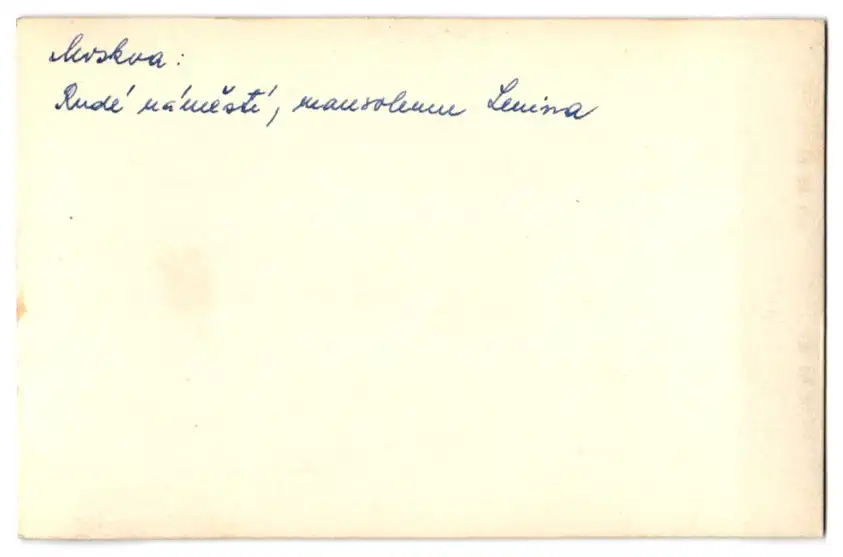 Moskva:
Rudé náměstí, mausoleum Lenina